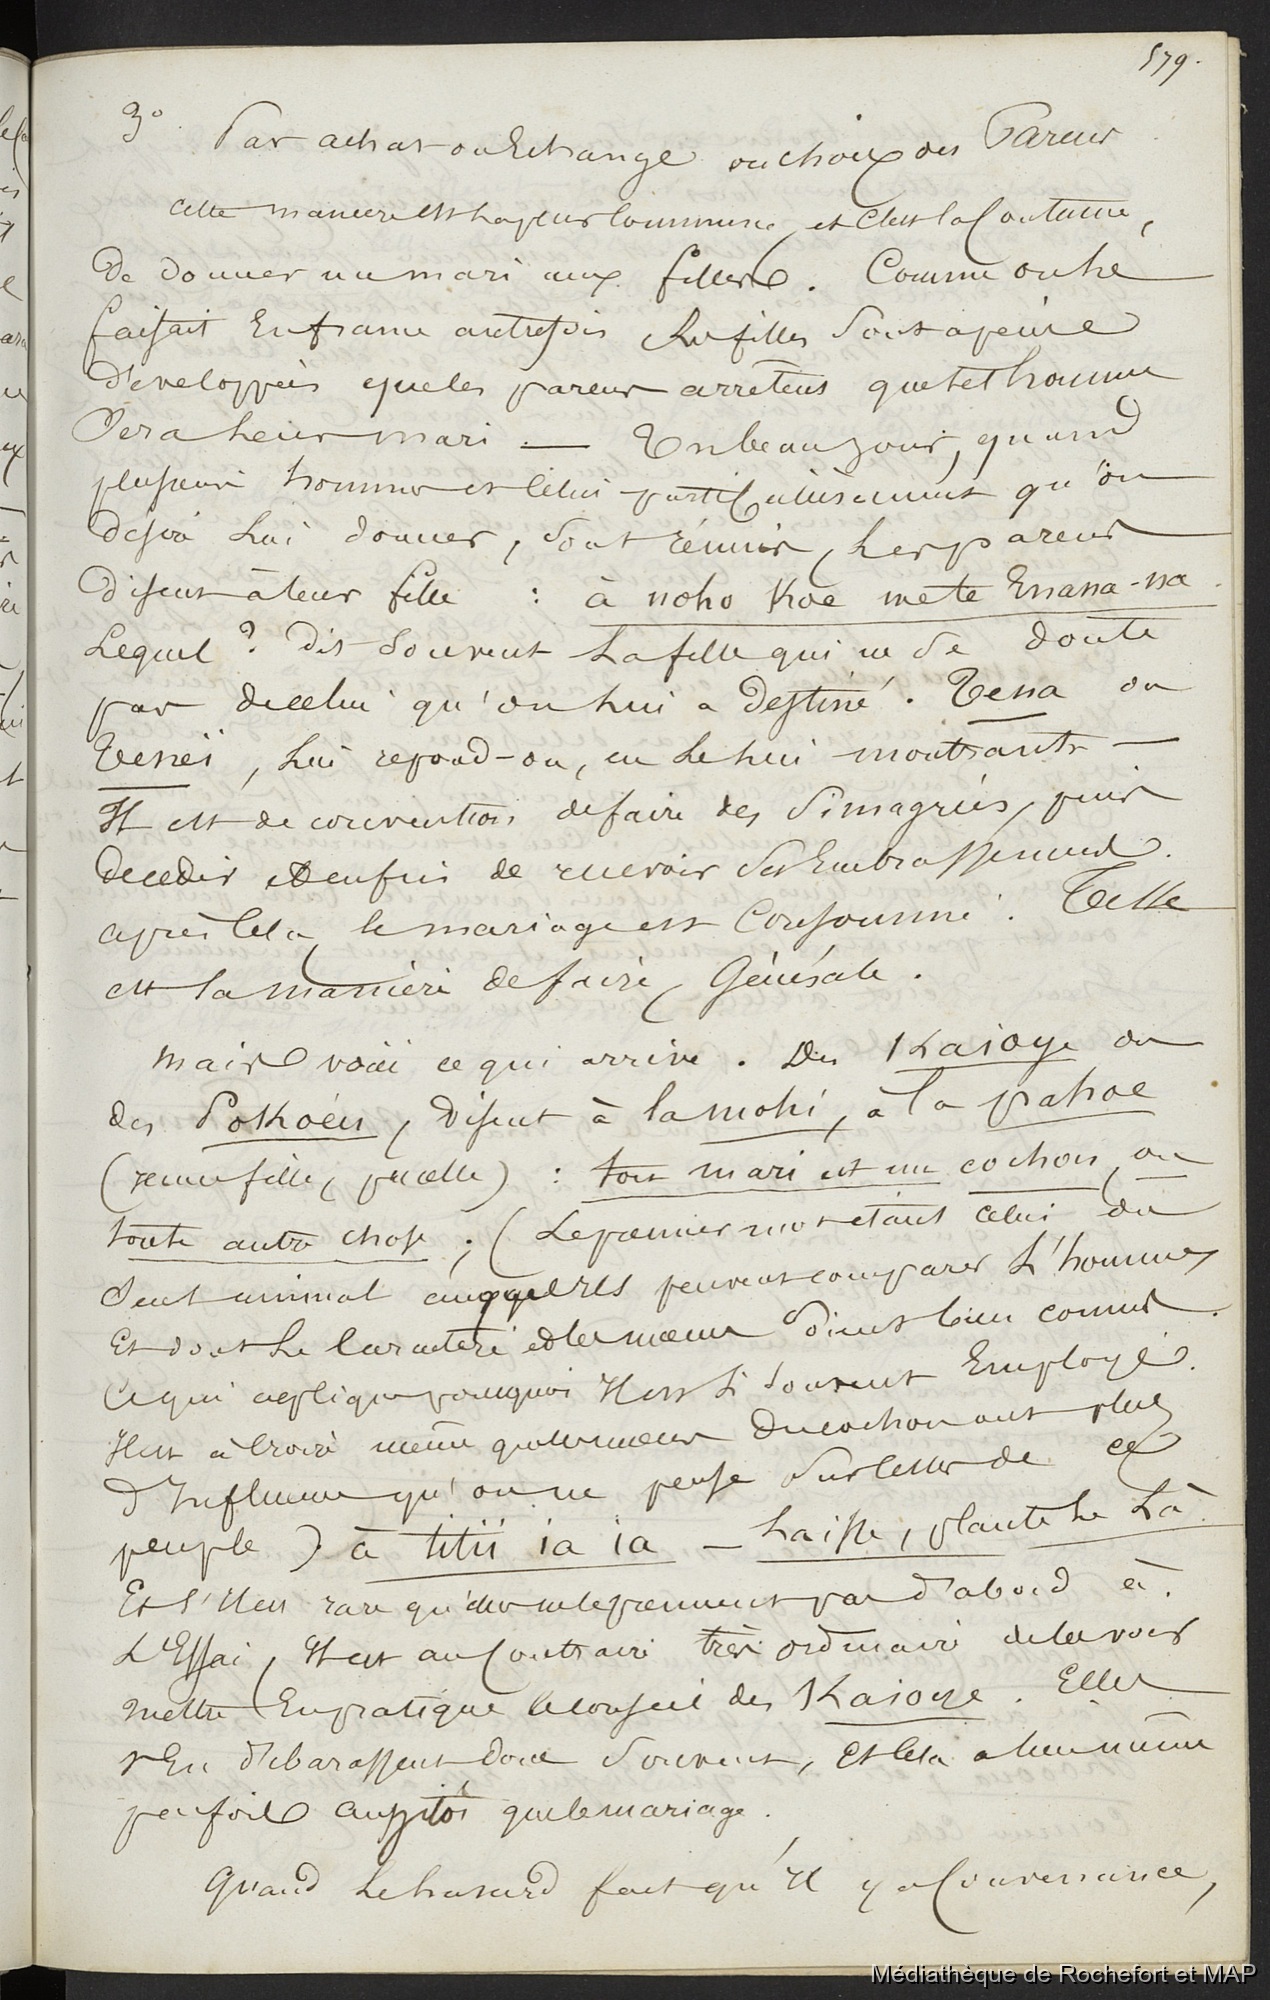 579.
3° Par achat ou Echange ou choix des Parens
cette maniere est la plus commune, et c'est la Coutume,
de donner un mari aux filles. Comme on le
faisait En france autrefois les filles sont a peine
développées que les parens arrêtent que tel homme
sera leur mari — Un beau jour, quand
plusieurs hommes et celui particulièrement qu'on
desire lui donner, sont réunis, les parens
disent à leur fille : à noho Koe mete Enana-na
Lequel ? dit souvent la fille qui ne se doute
pas de celui qu'on lui a destiné. Tena ou
Tenei, lui repond-on, en le lui montrant —
Il est de convention de faire des simagrées, puis
de ceder et enfin de recevoir ses Embrassemens.
après cela, le mariage est Consommé. Telle
est la manière de faire, Générale.
mais voici ce qui arrive. Des Kaioye ou
des Pokoés, disent à la mohi, à la pahoe
(jeune fille, pucelle) : ton mari est un cochon, ou
toute autre chose ; (Le premier mot étant celui du
seul animal auquel Ils peuvent comparer L'homme,
Et dont le Caractere et les mœurs soient bien connus.
Ce qui explique pourquoi Il est si souvent Employé.
Il est à Croire même que les mœurs du cochon ont plus
d'Influence qu'on ne pense sur celles de ce
peuple) à titii ia ia — Laisse, plante le Là.
Et s'Il est rare qu'elles ne le prennent pas d'abord à
L'Essai, Il est au Contraire très ordinaire de les voir
mettre En pratique le conseil des Kaioye. Elles
s'En débarassent donc souvent, Et cela a lieu même
parfois aussitôt que le mariage.
Quand Le hasard fait qu'Il y a Convenance,
Médiathèque de Rochefort et MAP